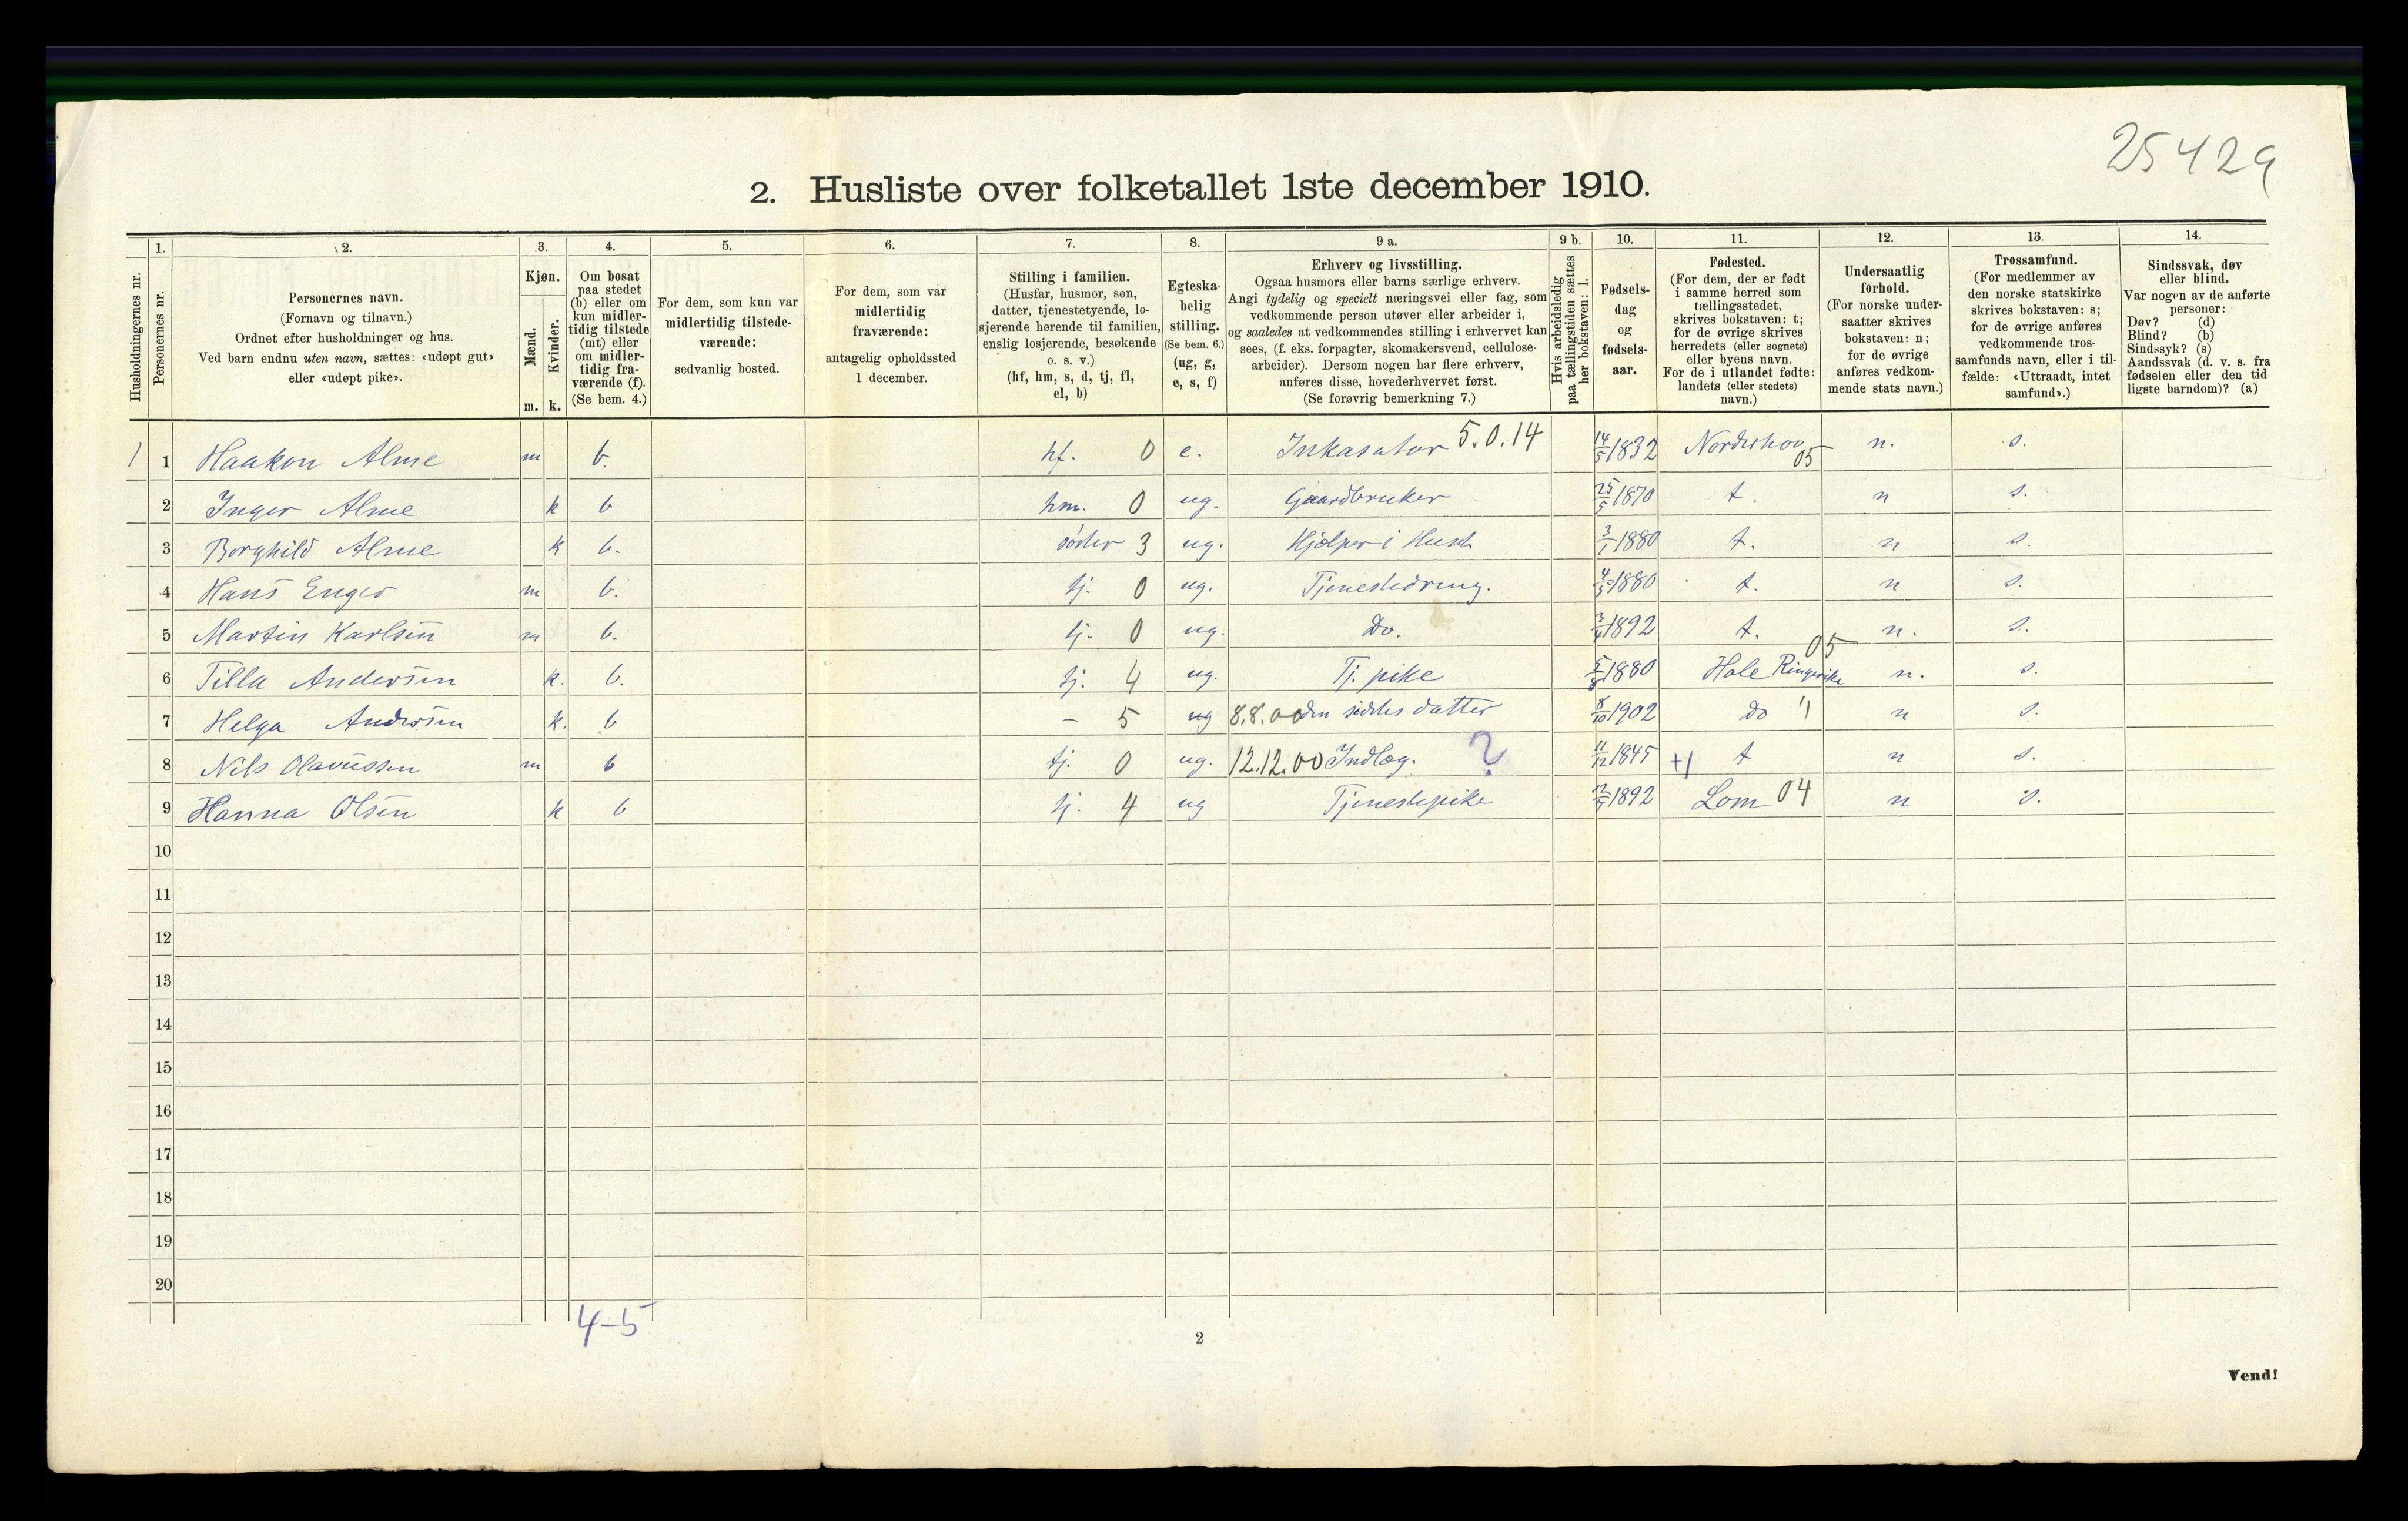 25429
2. Husliste over folketallet 1ste december 1910.
Husholdningernes nr.
1.
Personernes nr.
2.
Personernes navn.
(Fornavn og tilnavn.)
Ordnet efter husholdninger og hus.
Ved barn endnu uten navn, sættes: «udøpt gut»
eller «udøpt pike».
3.
Kjøn.
Mænd.
Kvinder.
m. k.
4.
Om bosat
paa stedet
(b) eller om
kun midler-
tidig tilstede
(mt) eller
om midler-
tidig fra-
værende (f).
(Se bem. 4.)
5.
For dem, som kun var
midlertidig tilstede-
værende:
sedvanlig bosted.
6.
For dem, som var
midlertidig
fraværende:
antagelig opholdssted
1 december.
7.
Stilling i familien.
(Husfar, husmor, søn,
datter, tjenestetyende, lo-
sjerende hørende til familien,
enslig losjerende, besøkende
o. s. v.)
(hf, hm, s, d, tj, fl,
el, b)
8.
Egteska-
belig
stilling.
(Se bem. 6.)
(ug, g,
e, s, f)
9 a.
Erhverv og livsstilling.
Ogsaa husmors eller barns særlige erhverv.
Angi tydelig og specielt næringsvei eller fag, som
vedkommende person utøver eller arbeider i,
og saaledes at vedkommendes stilling i erhvervet kan
sees, (f. eks. forpagter, skomakersvend, cellulose-
arbeider). Dersom nogen har flere erhverv,
anføres disse, hovederhvervet først.
(Se forøvrig bemerkning 7.)
9 b.
Hvis arbeidsledig
paa tællingstiden sættes
her bokstaven: l.
10.
Fødsels-
dag
og
fødsels-
aar.
11.
Fødested.
(For dem, der er født
i samme herred som
tællingsstedet,
skrives bokstaven: t;
for de øvrige skrives
herredets (eller sognets)
eller byens navn.
For de i utlandet fødte:
landets (eller stedets)
navn.)
12.
Undersaatlig
forhold.
(For norske under-
saatter skrives
bokstaven: n;
for de øvrige
anføres vedkom-
mende stats navn.)
13.
Trossamfund.
(For medlemmer av
den norske statskirke
skrives bokstaven: s;
for de øvrige anføres
vedkommende tros-
samfunds navn, eller i til-
fælde: «Uttraadt, intet
samfund».)
14.
Sindssvak, døv
eller blind.
Var nogen av de anførte
personer:
Døv? (d)
Blind? (b)
Sindssyk? (s)
Aandssvak (d. v. s. fra
fødselen eller den tid
ligste barndom)? (a)
1 1 Haakon Alme m b. hf. 0 e. Inkasator 5.0.14 14/5 1832 Norderhov 05 n. s.
2 Inger Alme k b hm. 0 ug. Gaardbruker 25/5 1870 t. n s.
3 Borghild Alme k b. søster 3 ug. Hjelper i Huset 3/1 1880 t. n s.
4 Hans Enger m b. tj. 0 ug. Tjenestedreng. 4/5 1880 t. n s.
5 Martin Karlsen m b. tj. 0 ug. Do. 3/4 1892 t. n. s.
6 Tilla Andersen k. b. tj. 4 ug. Tj. pike 5/8 1880 Hole Ringerike 05 n. s.
7 Helga Andersen k. b - 5 ug 8.8.00 den sidstes datter 8/10 1902 Do " n s.
8 Nils Olavussen m b tj. 0 ug. 12.12.00 Indlæg. ? 11/12 1845 +1 t n s.
9 Hanna Olsen k b tj. 4 ug Tjenestepike 1892 Lom 04 n s.
10
11
12
13
14
15
16
17
18
19
20
4-5
2
Vend!